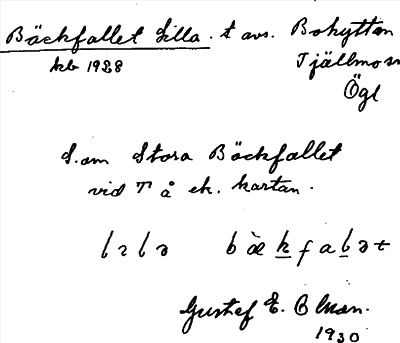 Bäckfallet Lilla. t avs. Bohyttan
hb 1928
Tjällmo sn
Ögl
S. om Stora Bäckfallet
vid T å ek. kartan.
Gustef E. Blman.
1930